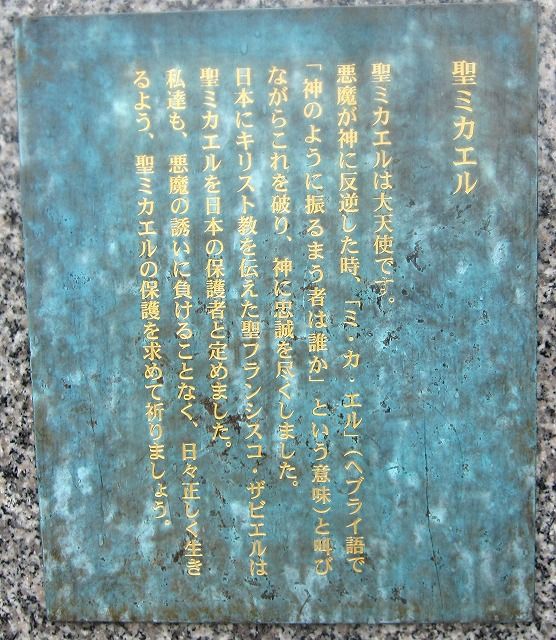 聖ミカエル
聖ミカエルは大天使です。
悪魔が神に反逆した時、「ミ・カ・エル」(ヘブライ語で
「神のように振るまう者は誰か」という意味)と叫び
ながらこれを破り、神に忠誠を尽くしました。
日本にキリスト教を伝えた聖フランシスコ・ザビエルは
聖ミカエルを日本の保護者と定めました。
私達も、悪魔の誘いに負けることなく、日々正しく生き
るよう、聖ミカエルの保護を求めて祈りましょう。